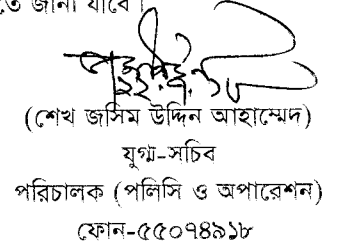 তে জানা যাবে।
(শেখ জসিম উদ্দিন আহাম্মেদ)
যুগ্ম-সচিব
পরিচালক (পলিসি ও অপারেশন)
ফোন-৫৫০৭৪৯১৮